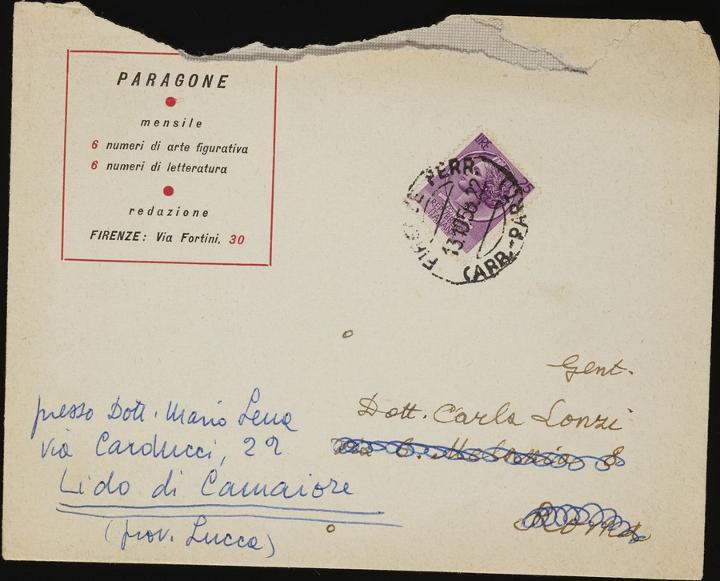 PARAGONE
mensile
6 numeri di arte figurativa
6 numeri di letteratura
redazione
FIRENZE: Via Fortini, 30
LIRE 25
FERR.
13.10.56.22
CARR.-PARO
Gent.
Dott. Carla Lonzi
Roma
presso Dott. Mario Lena
via Carducci, 22
Lido di Camaiore
(prov. Lucca)